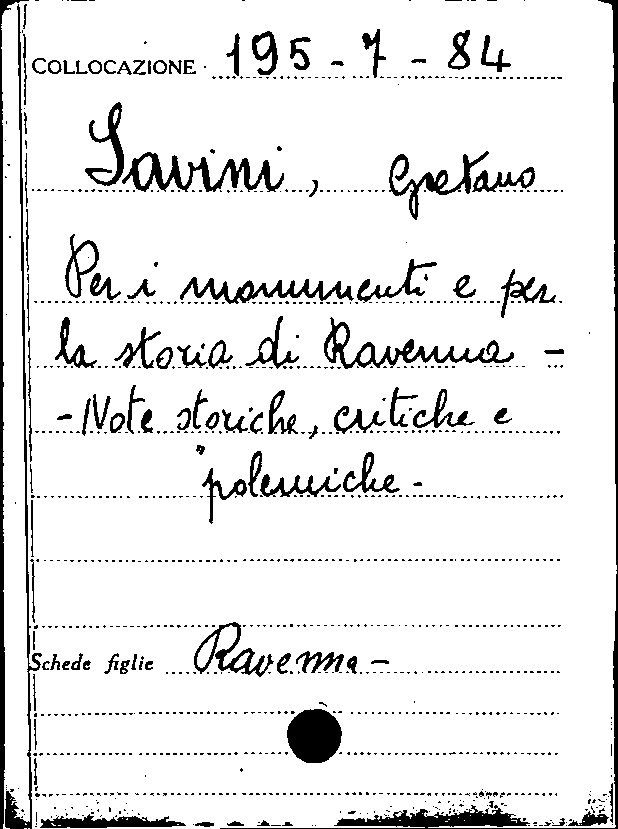 COLLOCAZIONE 195-7-84
Savini, Gaetano
Per i monumenti e per
la storia di Ravenna -
- Note storiche, critiche e
polemiche -
Schede figlie Ravenna -